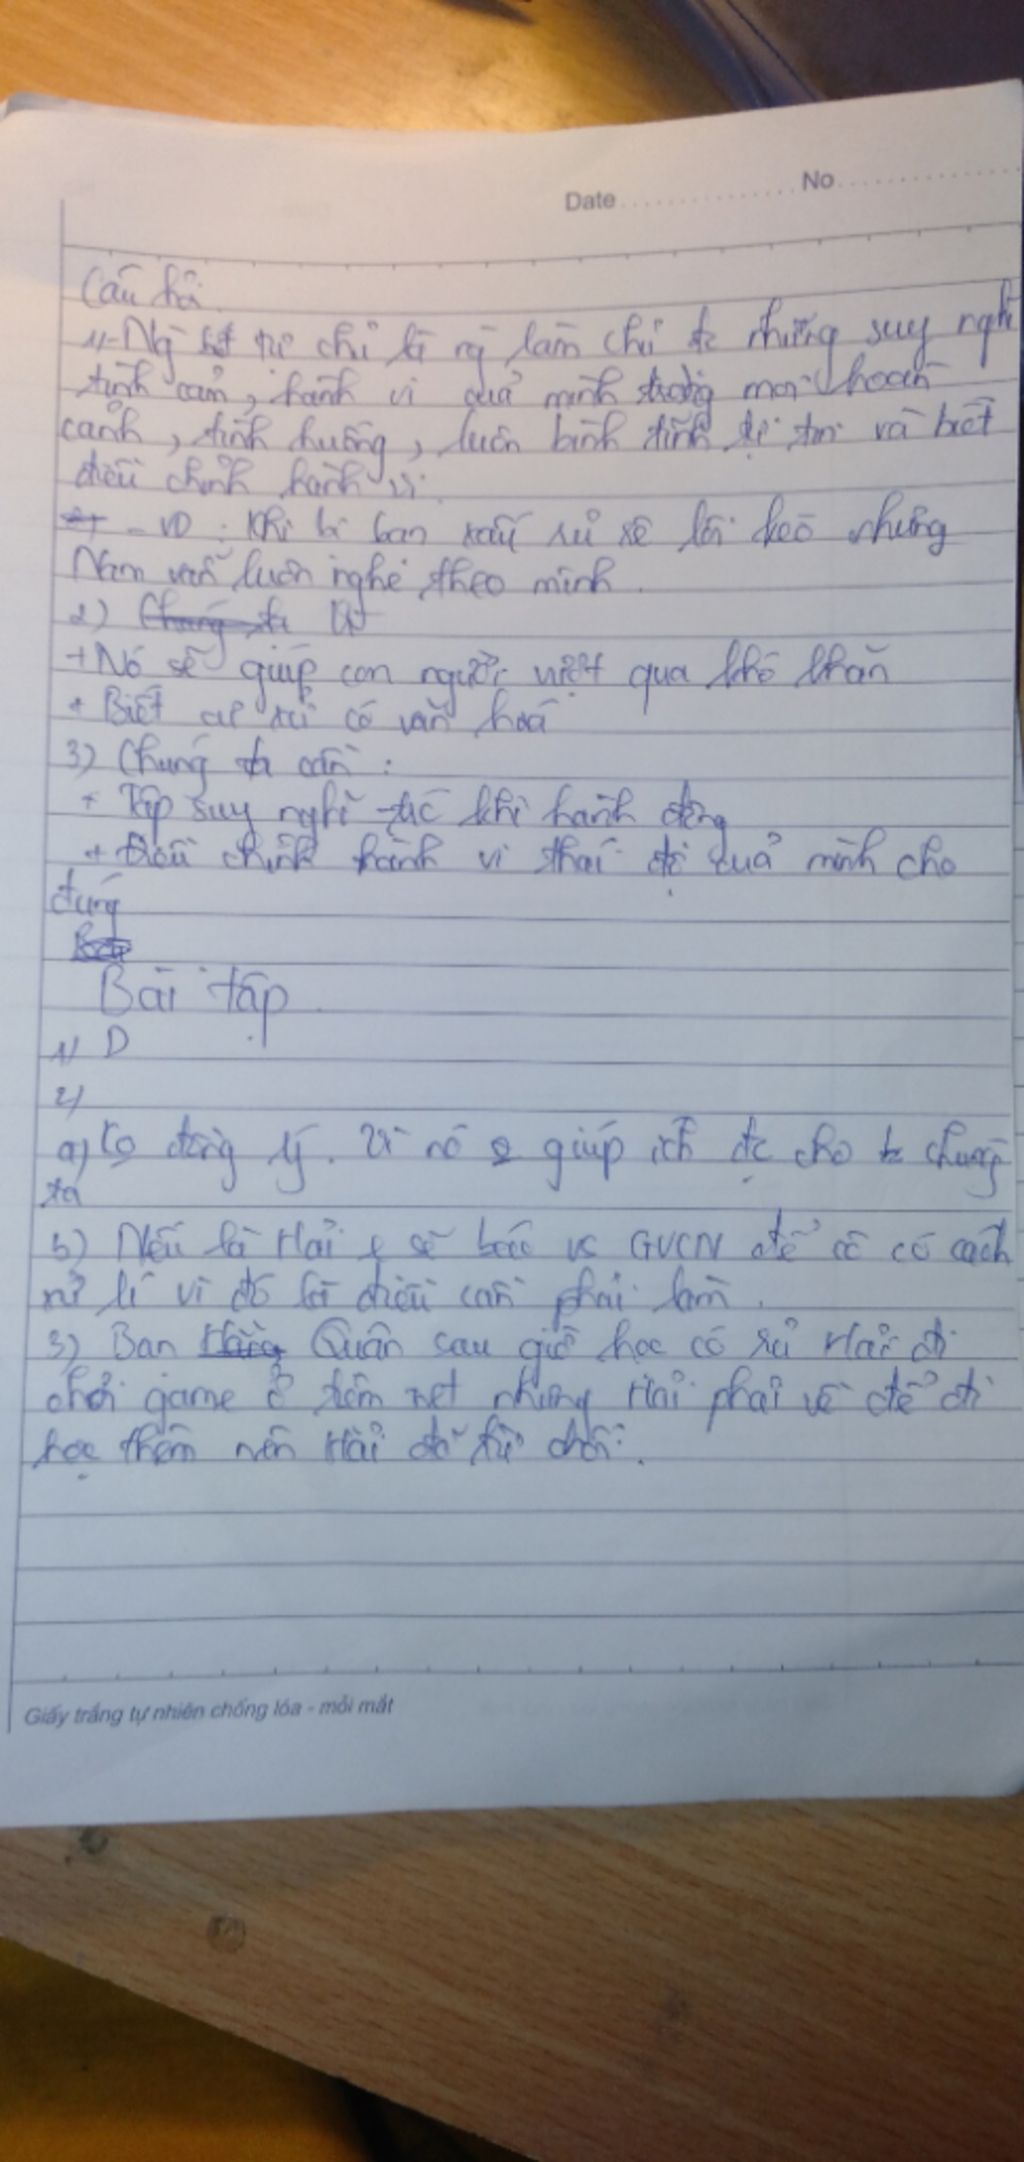 Date No
Câu hỏi
1, - Ng tự chủ là ng làm chủ đc những suy nghĩ
tình cảm, hành vi của mình trong mọi hoàn
cảnh, tình huống, luôn bình tĩnh tự tin và biết
điều chỉnh hành vi.
- VD: Khi bị bạn xấu rủ rê lôi kéo nhưng
Nam vẫn luôn nghe theo mình.
2)
+ Nó sẽ giúp con người vượt qua khó khăn
+ Biết cư xử có văn hoá
3) Chúng ta cần:
+ Tập suy nghĩ trc khi hành động
+ Điều chỉnh hành vi thái độ của mình cho
đúng
Bài tập.
1/ D
2/
a) Ko đồng ý. Vì nó giúp ích đc cho chúng
ta
b) Nếu là Hải e sẽ báo vs GVCN để cô có cách
xử lí vì đó là điều cần phải làm.
3) Bạn Quân sau giờ học có rủ Hải đi
chơi game ở tiệm net nhưng Hải phải về để đi
học thêm nên Hải đã từ chối.
Giấy trắng tự nhiên chống lóa - mỏi mắt